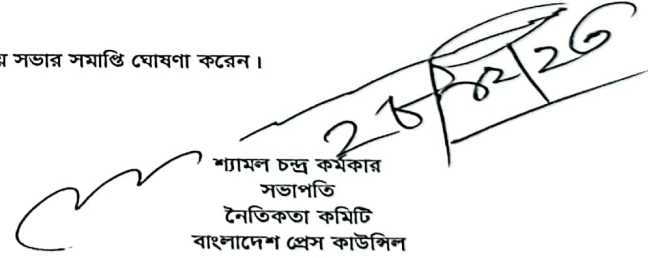 য় সভার সমাপ্তি ঘোষণা করেন।
শ্যামল চন্দ্র কর্মকার
সভাপতি
নৈতিকতা কমিটি
বাংলাদেশ প্রেস কাউন্সিল